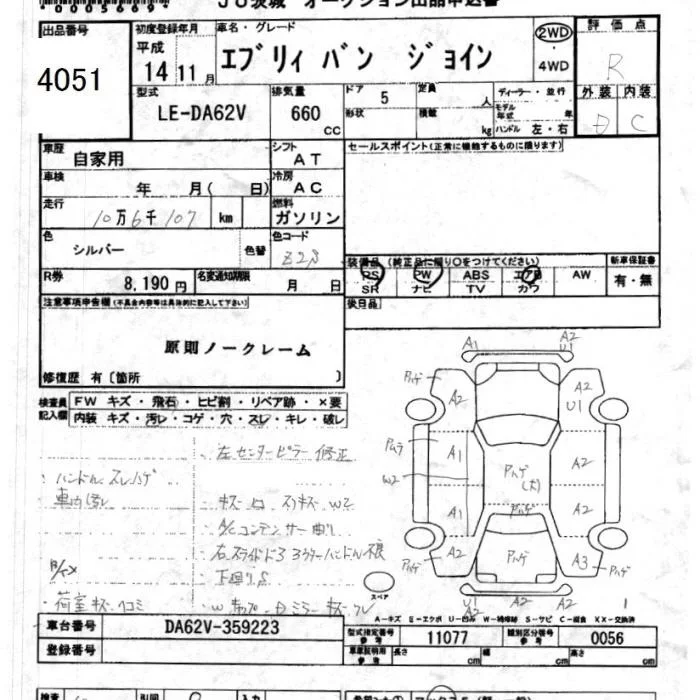 00056694
JU茨城 オークション出品申込書
出品番号
4051
初度登録年月
平成
14年11月
車名・グレード
エブリィ バン ジョイン
2WD
・
4WD
評価点
R
外装 内装
D C
型式
LE-DA62V
排気量
660
cc
ドア
5
形状
定員
人
積載
kg
ディーラー・並行
モデル
年式 年
ハンドル 左・右
車歴
自家用
シフト
AT
セールスポイント(正常に機能するものに限ります)
車検
年 月( 日)
冷房
AC
走行
10万6千107 km
燃料
ガソリン
色
シルバー
色替
色コード
Z2S
装備品 (純正品に限り○をつけてください)
PS PW ABS エアB AW
SR ナビ TV カワ
新車保証書
有・無
R券
8,190円
名変通知期限
月 日
後日品
注意事項申告欄(不具合内容等は具体的に記入して下さい)
原則ノークレーム
修復歴 有〔箇所 〕
検査員
記入欄
FW キズ・飛石・ヒビ割・リペア跡・×要
内装 キズ・汚レ・コゲ・穴・スレ・キレ・破レ
左センターピラー修正
・ハンドル スレハゲ
・車内汚レ
・キズ 凹 スリキズ W2
・A/Cコンデンサー曲り
・右スライドドア アウターハンドル不良
・下廻りS
荷室キズ ヘコミ
A1
A2
U1
ハゲ
A2
A2
U1
ハゲ
W2
A1
A2
ハゲ
(大)
A1
A2
ハゲ
ハゲ
A2
ハゲ
A3
ハゲ
スペア
U1
A2
A2
1
A-キズ E-エクボ U-凹み W-補修跡 S-サビ C-腐食 XX-交換済
車台番号
DA62V-359223
型式指定番号
参考
11077
類別区分番号
参考
0056
登録番号
車庫証明用
参考
長さ
cm
幅
cm
高さ
cm